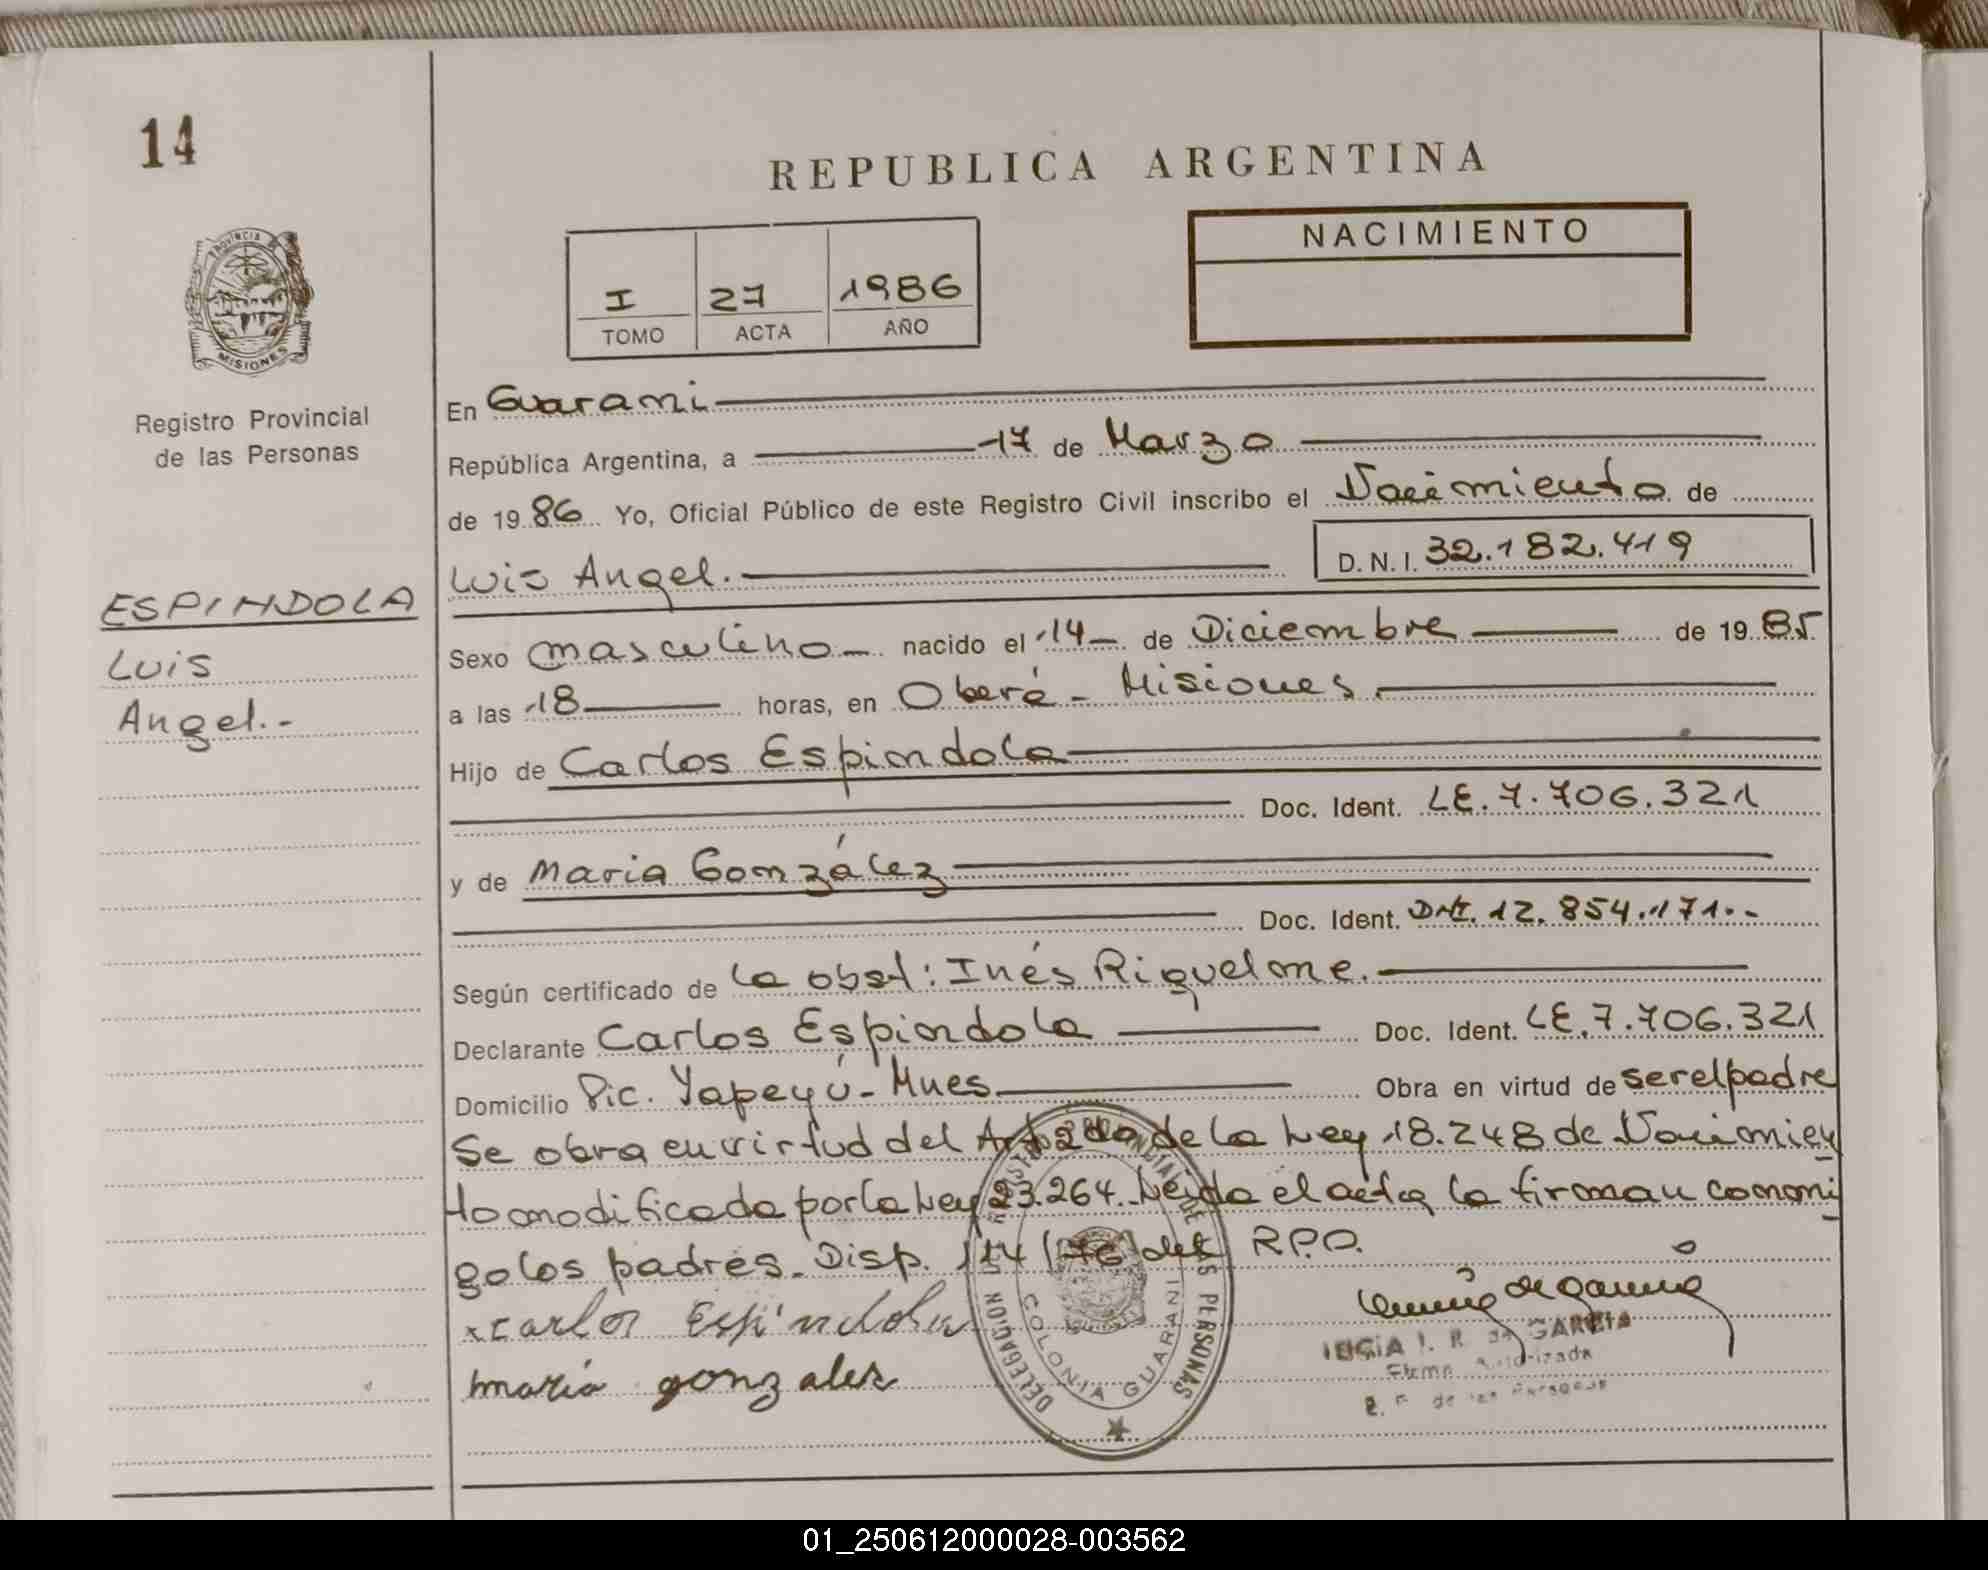 14
REPUBLICA ARGENTINA
PROVINCIA DE
MISIONES
Registro Provincial
de las Personas
I 27 1986
TOMO ACTA AÑO
NACIMIENTO
ESPINDOLA
Luis
Angel.-
En Guarani
República Argentina, a 17 de Marzo
de 1986 Yo, Oficial Público de este Registro Civil inscribo el Nacimiento de
Luis Angel. D. N. I. 32.182.419
Sexo masculino nacido el 14 de Diciembre de 1985
a las 18 horas, en Oberá - Misiones.
Hijo de Carlos Espindola
Doc. Ident. LE. 7.706.321
y de Maria González
Doc. Ident. DNI. 12.854.171.-
Según certificado de la obst: Inés Riquelme.
Declarante Carlos Espindola Doc. Ident. LE. 7.706.321
Domicilio Pic. Yapeyú - Mues Obra en virtud de ser el padre
Se obra en virtud del Art 2do de la Ley 18.248 de Nacimien
to modificada por la Ley 23.264. Leída el acta, la firman conmi
go los padres. Disp. 114/76 del R.P.P.
x Carlos Espindola
maria gonzalez
DELEGACION REGISTRO PROVINCIAL DE LAS PERSONAS
COLONIA GUARANI
de García
LUCIA I. R. de GARCIA
Firma Autorizada
R. P. de las Personas
01_250612000028-003562